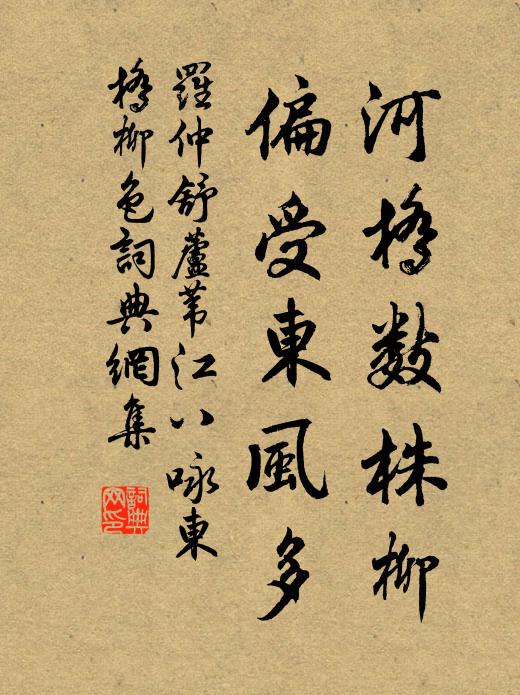 河橋数株柳
偏受東風多
羅仲舒蘆葦江八咏東
橋柳色詞典網集
詞典
网印